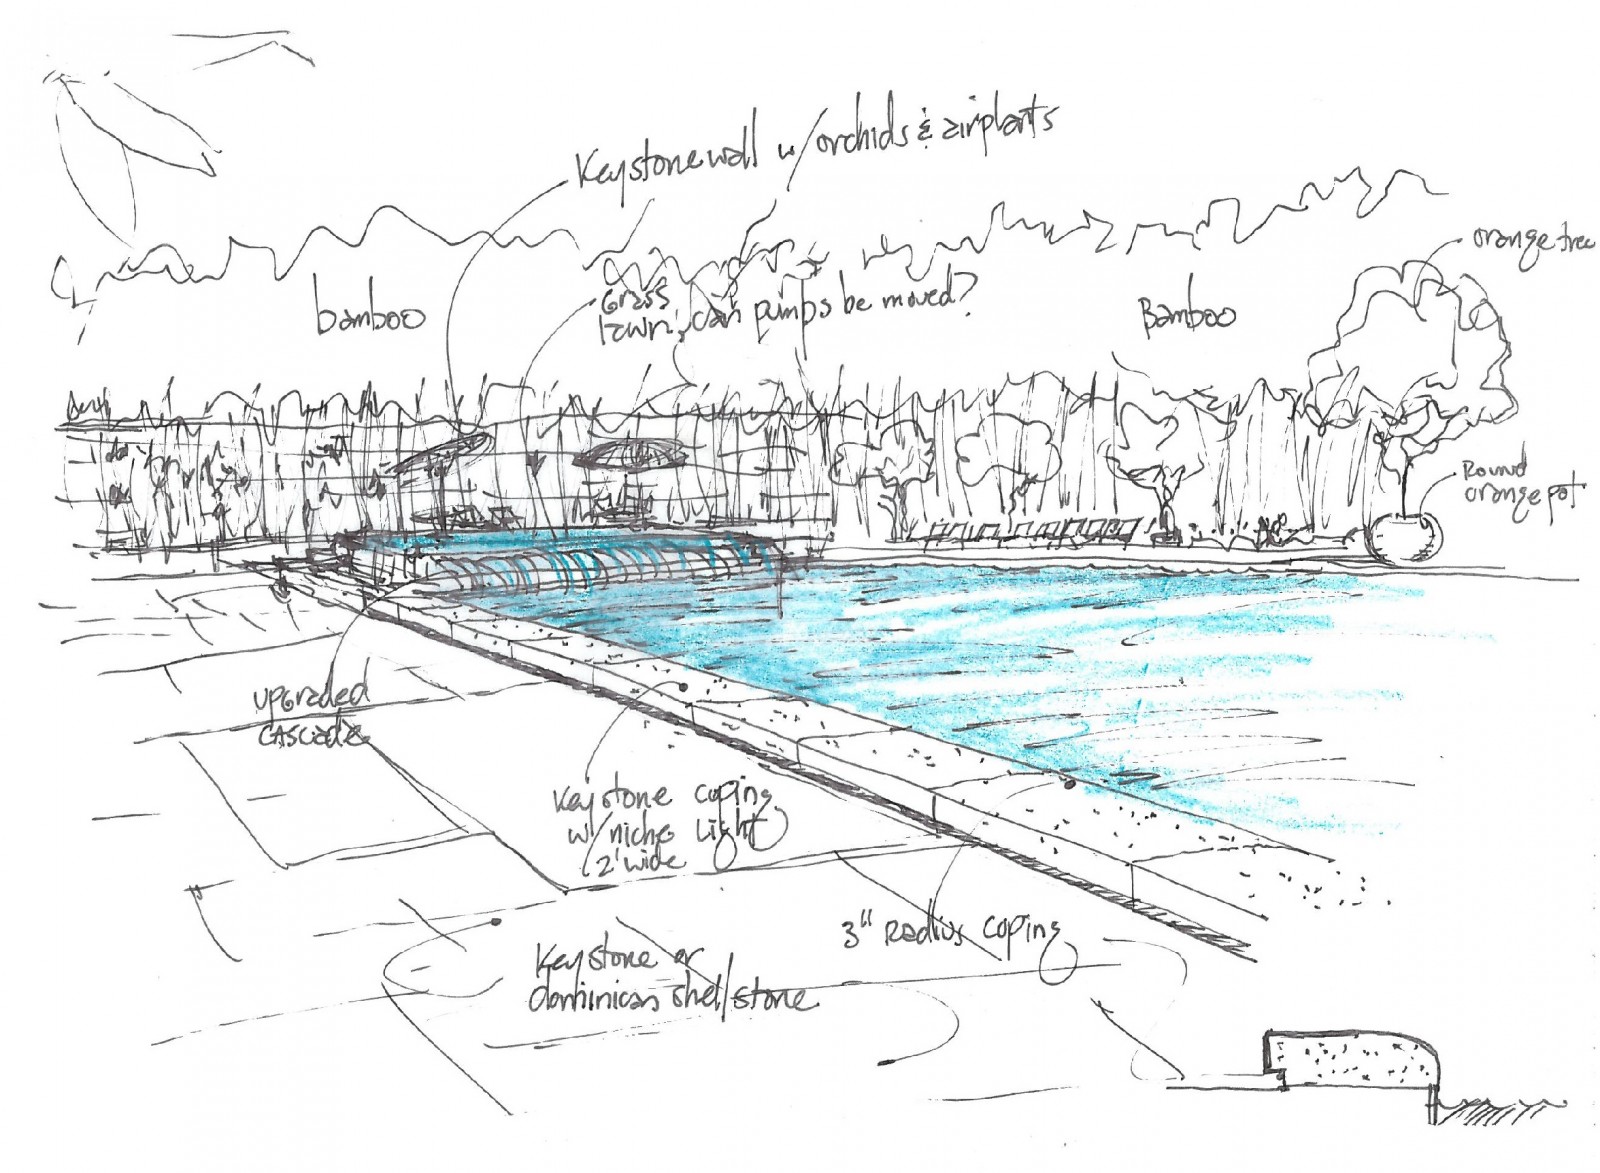 Keystone wall w/ orchids & airplants
orange tree
bamboo
Grass
lawn; can pumps be moved?
Bamboo
Round
orange pot
upgraded
cascade
Keystone coping
w/ niche light
2' wide
3" Radius coping
Keystone or
dominican shellstone